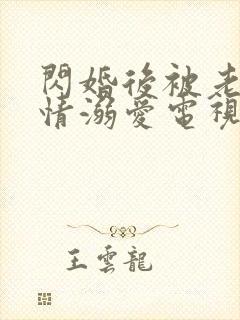 閃婚後被老
情溺愛電視
王雲龍